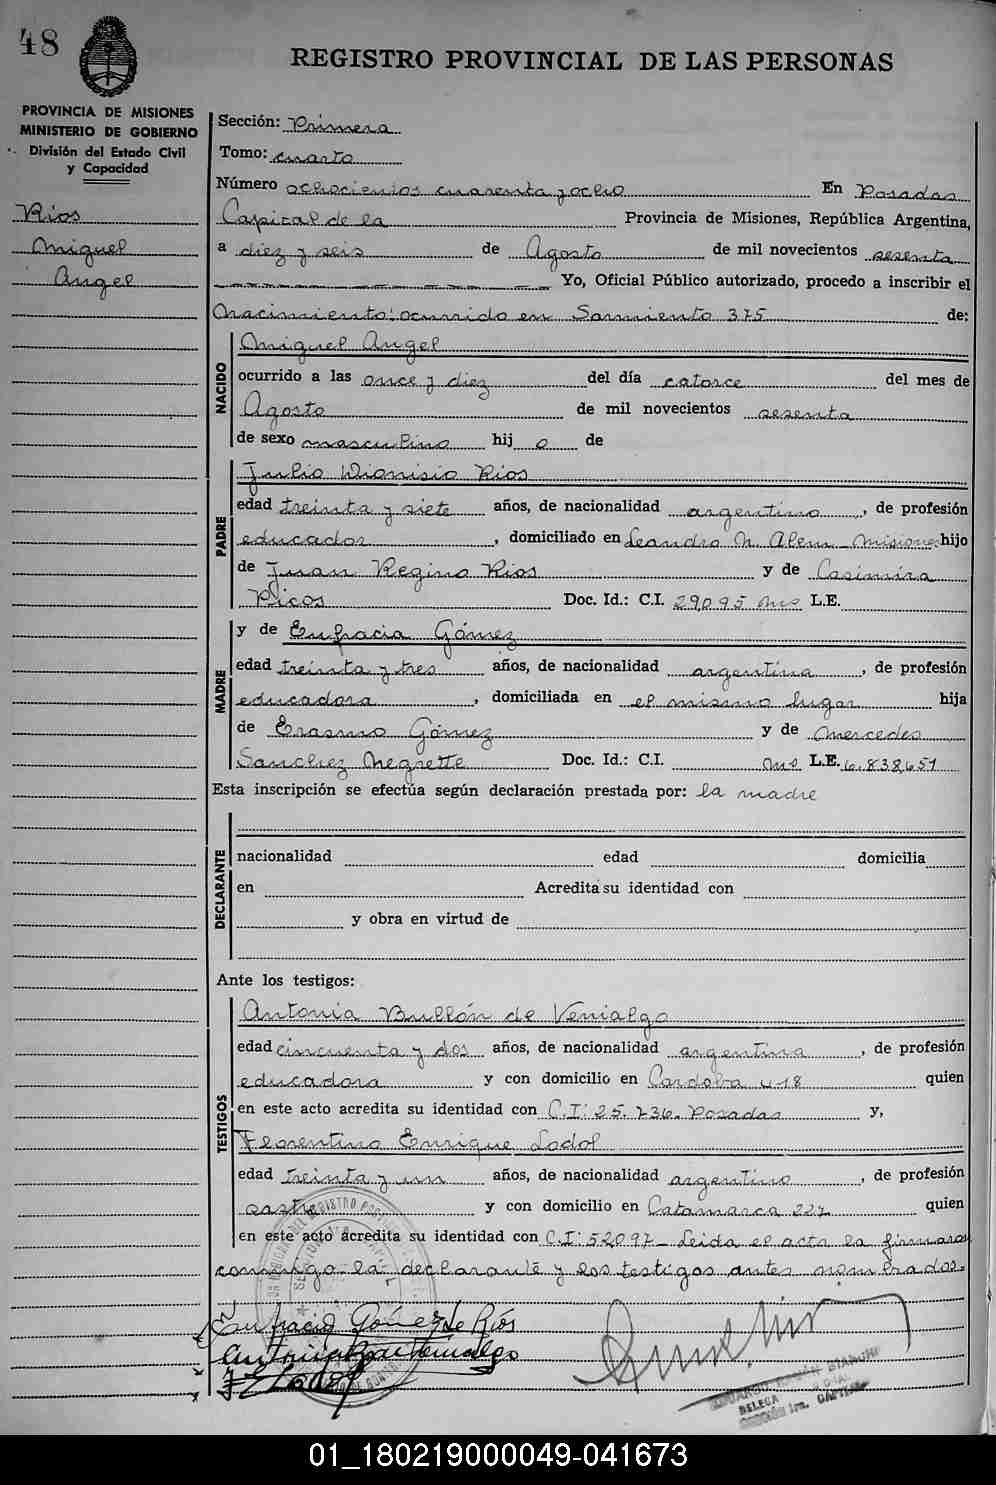 48
REGISTRO PROVINCIAL DE LAS PERSONAS
PROVINCIA DE MISIONES
MINISTERIO DE GOBIERNO
División del Estado Civil
y Capacidad
Rios
Miguel
Angel
Sección: Primera
Tomo: cuarto
Número ochocientos cuarenta y ocho En Posadas
Capital de la Provincia de Misiones, República Argentina,
a diez y seis de Agosto de mil novecientos sesenta
Yo, Oficial Público autorizado, procedo a inscribir el
Nacimiento: ocurrido en Sarmiento 375 de:
NACIDO
Miguel Angel
ocurrido a las once y diez del día catorce del mes de
Agosto de mil novecientos sesenta
de sexo masculino hij o de
PADRE
Julio Dionisio Rios
edad treinta y siete años, de nacionalidad argentino, de profesión
educador, domiciliado en Leandro N. Alem Misiones hijo
de Juan Regino Rios y de Casimira
Ricos Doc. Id.: C.I. 29095 Mns L.E.
MADRE
y de Eufracia Gómez
edad treinta y tres años, de nacionalidad argentina, de profesión
educadora, domiciliada en el mismo lugar hija
de Erasmo Gómez y de Mercedes
Sanchez Negrette Doc. Id.: C.I. L.E. 6.838651
Esta inscripción se efectúa según declaración prestada por: la madre
DECLARANTE
nacionalidad edad domicilia
en Acredita su identidad con
y obra en virtud de
Ante los testigos:
TESTIGOS
Antonia Bullón de Venialgo
edad cincuenta y dos años, de nacionalidad argentina, de profesión
educadora y con domicilio en Cordoba 418 quien
en este acto acredita su identidad con C.I: 25.236. Posadas y,
Florentino Enrique Lodol
edad treinta y un años, de nacionalidad argentino, de profesión
sastre y con domicilio en Catamarca 227 quien
en este acto acredita su identidad con C.I: 52097- Leida el acta la firmaron
conmigo la declarante y los testigos antes nombrados.
Eufracia Gómez de Ríos
01_180219000049-041673